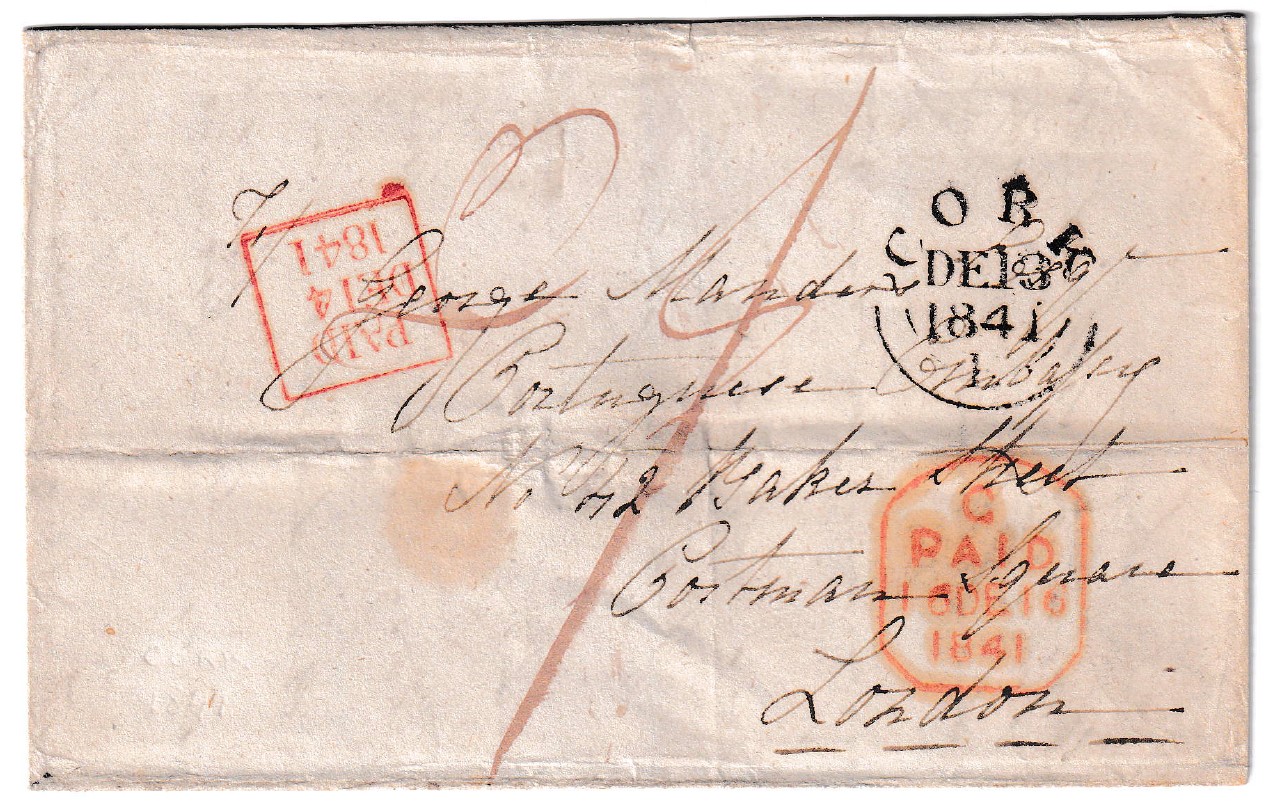 CORK
DE 13
1841
1
PAID
DE 14
1841
George Manders Esqr
Portuguese Embassy
No 12 Baker Street
Portman Square
London
G
PAID
16 DE 16
1841